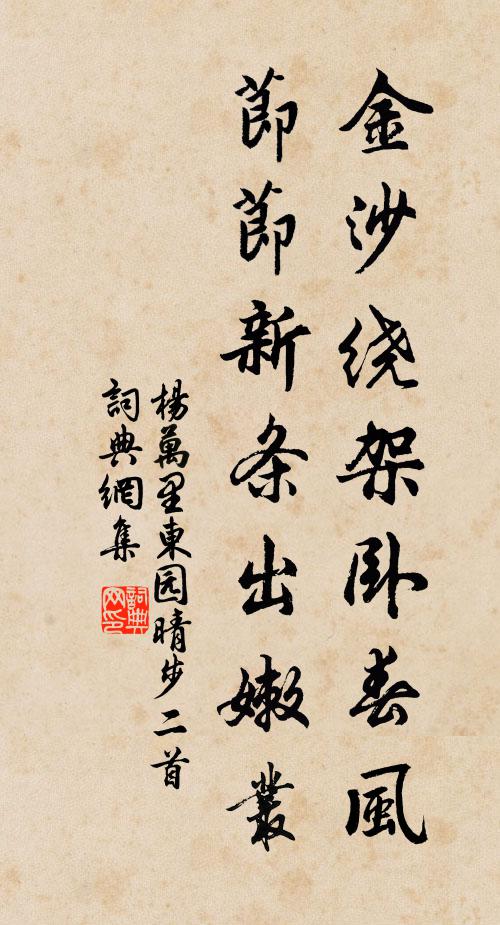 金沙绕架卧春風
節節新条出嫩叢
楊萬里東园晴步二首
詞典網集
詞典网印